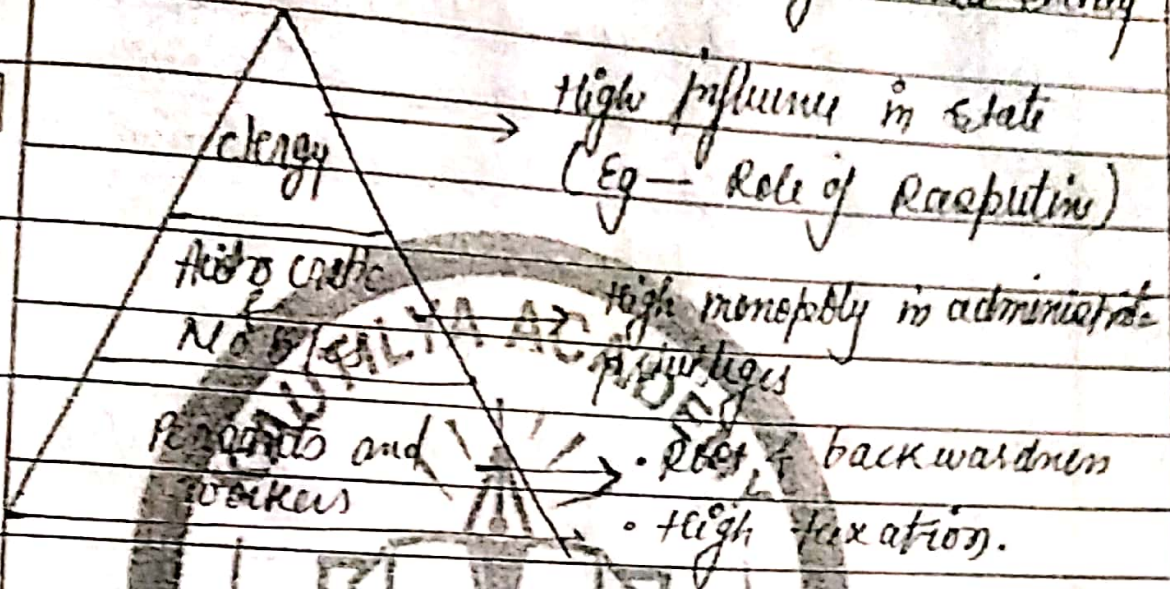 Clergy → High influence in State
(Eg — Role of Rasputin)
Aristocratic
Nobles → High monopoly in administrat-
privileges
Peasants and → • Poor & backwardness
workers
• High taxation.